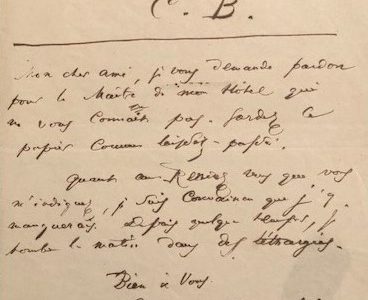 C. B.
Mon cher ami, je vous demande pardon
pour le Maître de mon Hôtel qui
ne vous connaît pas. Gardez ce
papier comme laissez-passer.
Quant au Rendez vous que vous
m'indiquez, je suis convaincu que j'y
manquerais. Depuis quelque temps, je
tombe le matin dans des léthargies.
Bien à Vous.